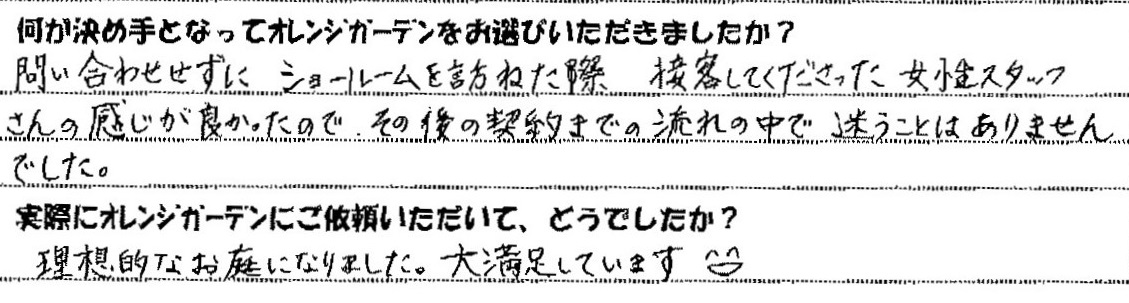 何が決め手となってオレンジガーデンをお選びいただきましたか？
問い合わせせずに ショールームを訪ねた際 接客してくださった 女性スタッフ
さんの感じが良かったので、その後の契約までの流れの中で 迷うことはありません
でした。
実際にオレンジガーデンにご依頼いただいて、どうでしたか？
理想的なお庭になりました。大満足しています